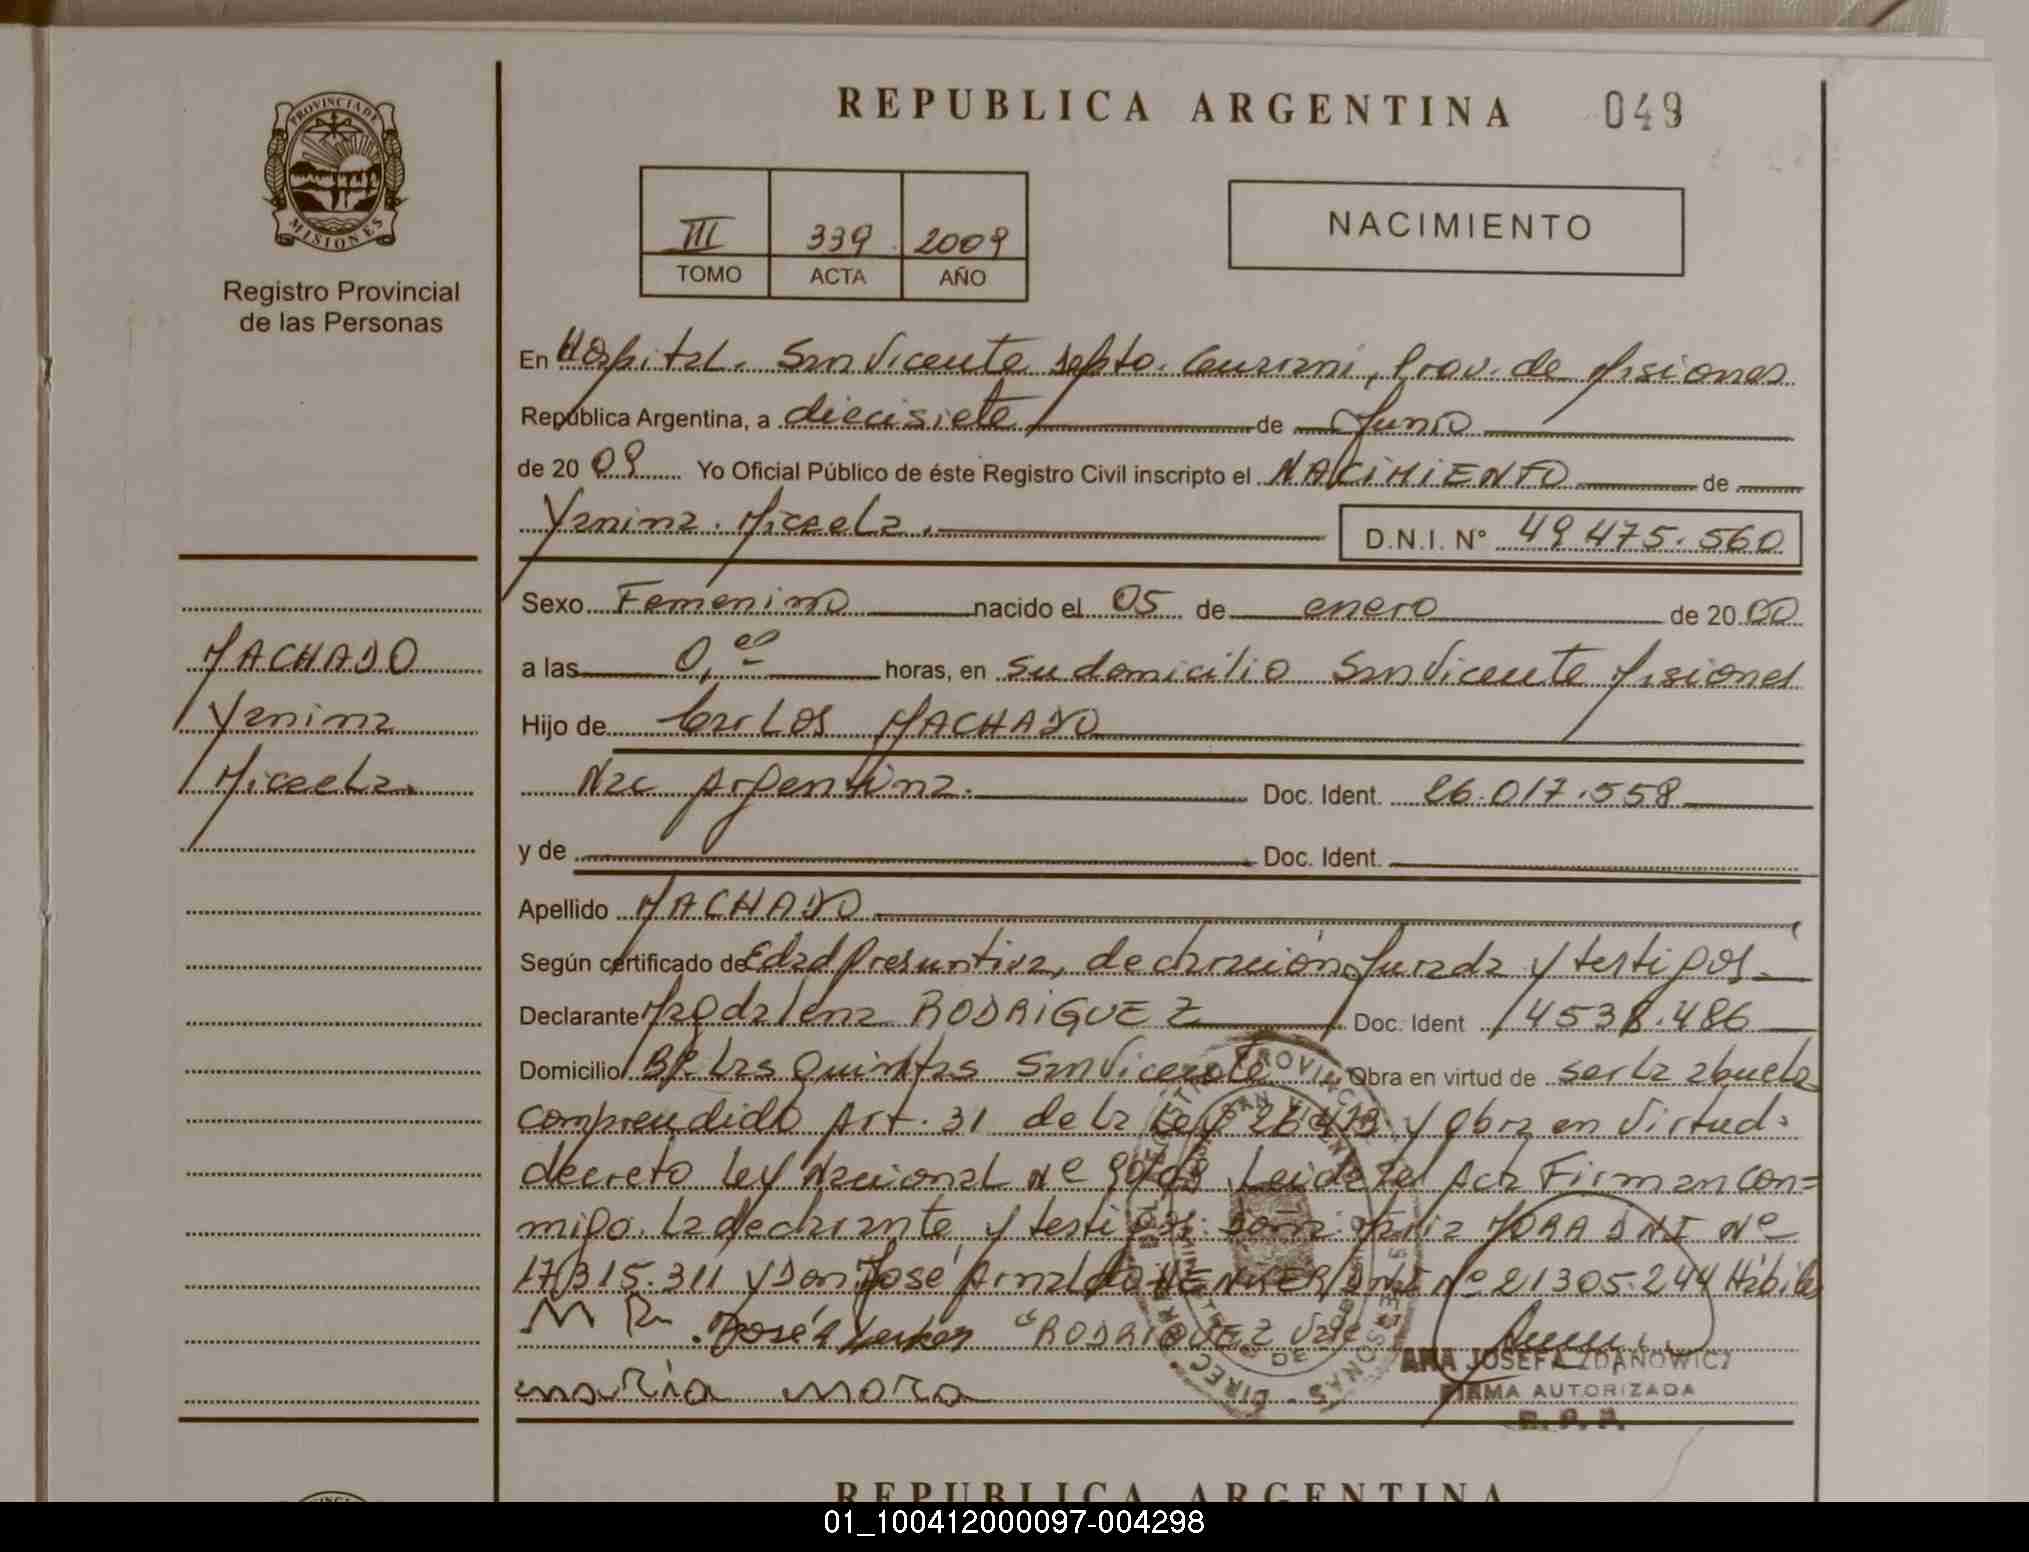 PROVINCIA DE
MISIONES
Registro Provincial
de las Personas
MACHADO
Yanina
Micaela.
REPUBLICA ARGENTINA 049
III 339 2009
TOMO ACTA AÑO
NACIMIENTO
En Hospital. San Vicente Depto. Guarani, Prov. de Misiones
República Argentina, a diecisiete de Junio
de 2009 Yo Oficial Público de éste Registro Civil inscripto el NACIMIENTO de
Yanina. Micaela. D.N.I. N° 49.475.560
Sexo Femenino nacido el 05 de enero de 2000
a las 0,00 horas, en su domicilio San Vicente Misiones
Hijo de Carlos MACHADO
Nac Argentina. Doc. Ident. 26.017.558
y de Doc. Ident.
Apellido MACHADO
Según certificado de Edad Presuntiva, declaración Jurada y testigos
Declarante Magdalena RODRIGUEZ Doc. Ident 14538.486
Domicilio Bº Las Quintas San Vicente Obra en virtud de ser la abuela
comprendido Art. 31 de la Ley 26.413 y Obra en Virtud
decreto Ley Nacional Nº Leida el Acta Firman con=
migo. la declarante y testigos: Doña: Maria MORA DNI Nº
17.315.311 y Don José Arnaldo DNI Nº 21305.244 Hábiles
M R José RODRIGUEZ Vale
maria mora
ANA JOSEFA ZDANOWICZ
FIRMA AUTORIZADA
R. P. P.
REPUBLICA ARGENTINA
01_100412000097-004298